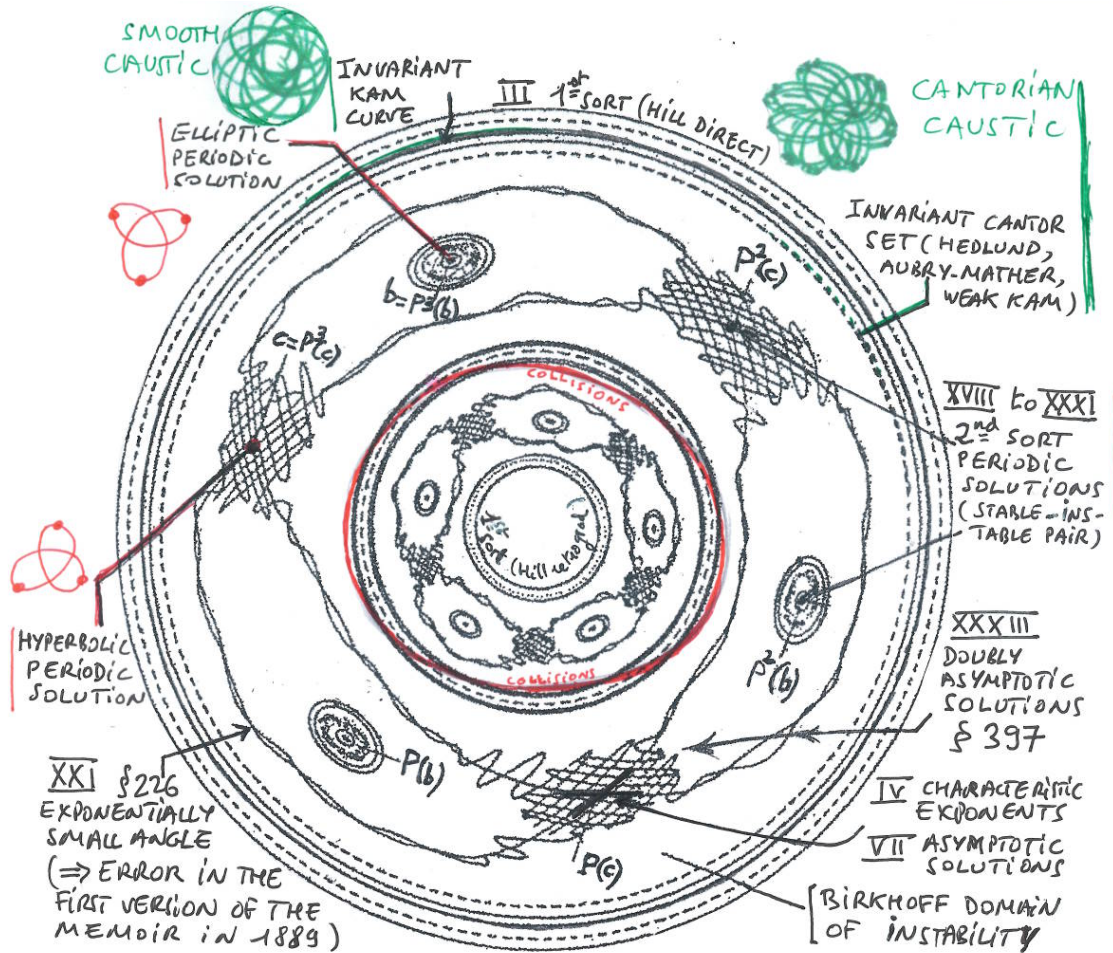 SMOOTH
CAUSTIC
INVARIANT
KAM
CURVE
III 1st SORT (HILL DIRECT)
CANTORIAN
CAUSTIC
ELLIPTIC
PERIODIC
SOLUTION
INVARIANT CANTOR
SET (HEDLUND,
AUBRY-MATHER,
WEAK KAM)
b=P³(b)
P²(c)
c=P³(c)
COLLISIONS
XVIII to XXXI
2nd SORT
PERIODIC
SOLUTIONS
(STABLE-INS-
TABLE PAIR)
1st
sort (Hill retrograd)
HYPERBOLIC
PERIODIC
SOLUTION
COLLISIONS
P²(b)
XXXIII
DOUBLY
ASYMPTOTIC
SOLUTIONS
§ 397
P(b)
XXI § 226
EXPONENTIALLY
SMALL ANGLE
(⇒ ERROR IN THE
FIRST VERSION OF THE
MEMOIR IN 1889)
P(c)
IV CHARACTERISTIC
EXPONENTS
VII ASYMPTOTIC
SOLUTIONS
BIRKHOFF DOMAIN
OF INSTABILITY